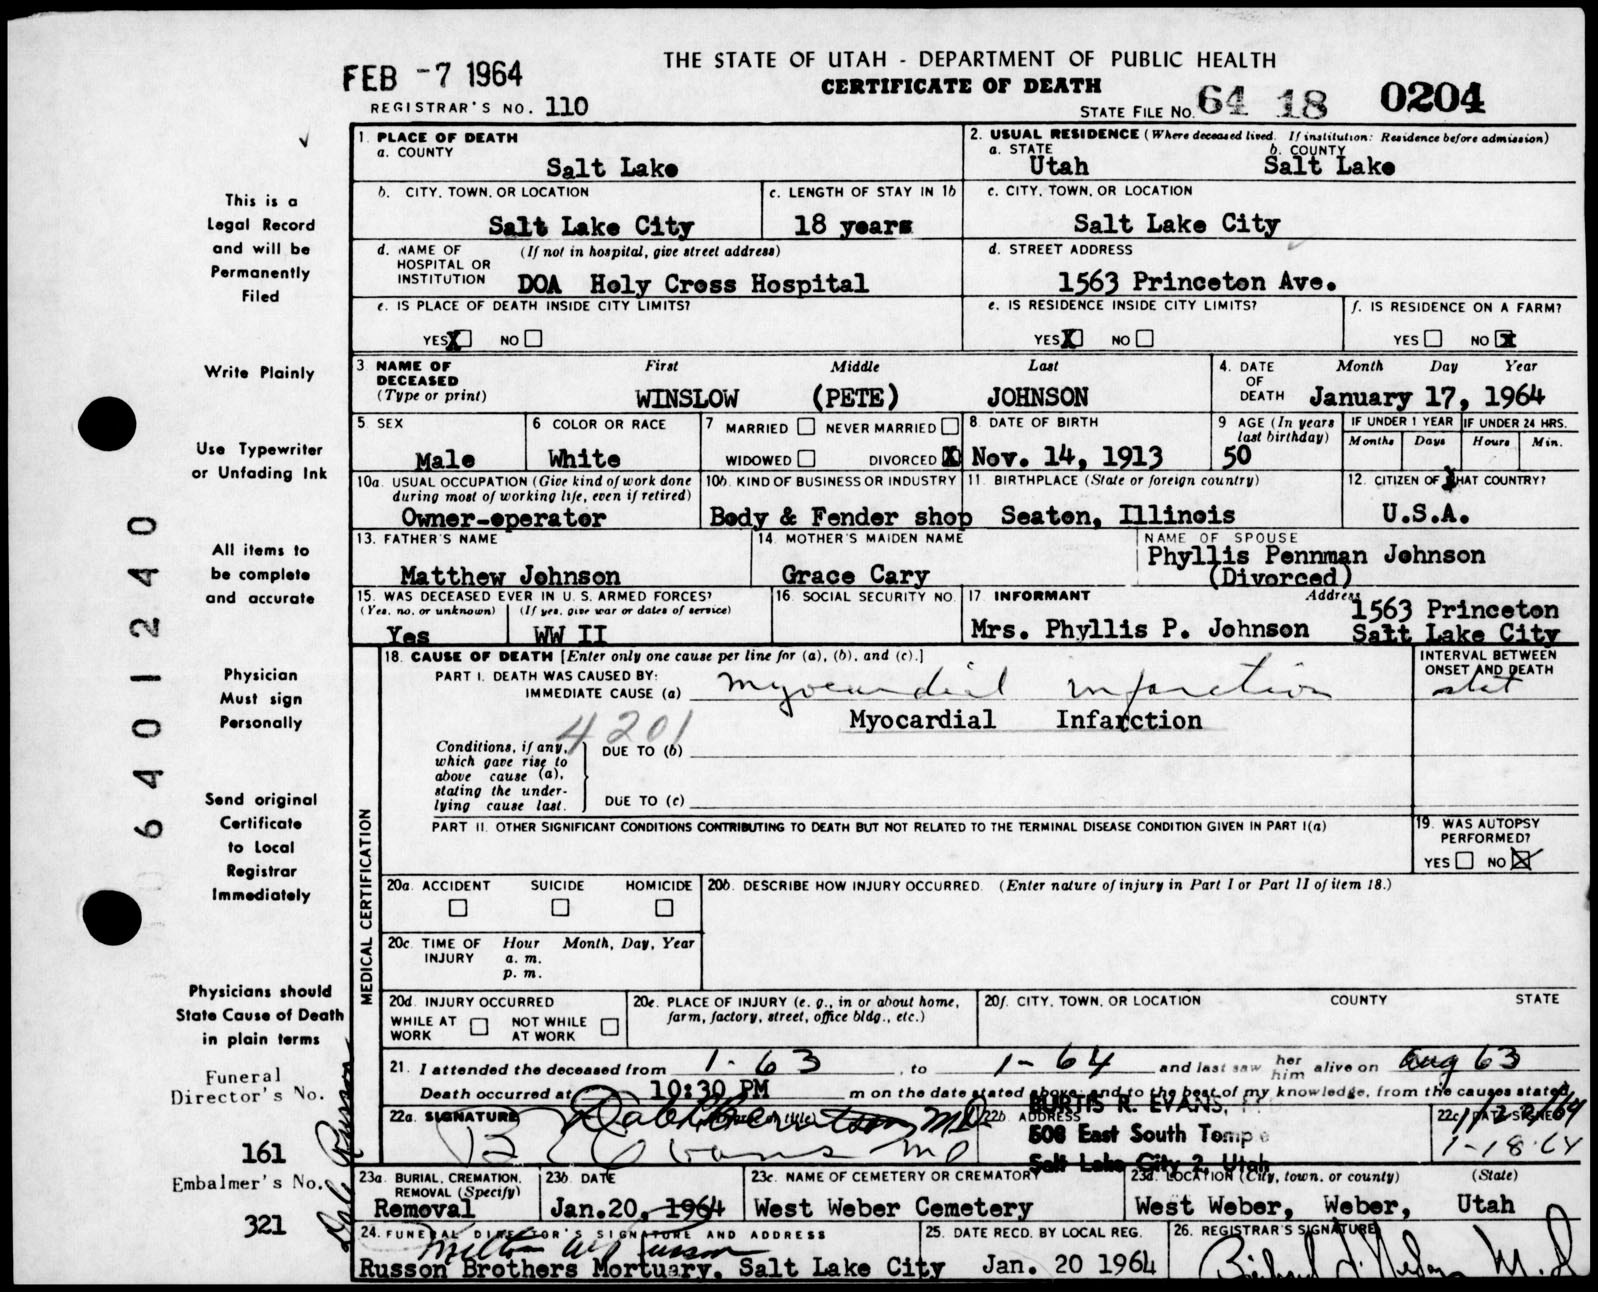 FEB -7 1964
THE STATE OF UTAH - DEPARTMENT OF PUBLIC HEALTH
CERTIFICATE OF DEATH
REGISTRAR'S NO. 110
STATE FILE NO. 64 18 0204
This is a
Legal Record
and will be
Permanently
Filed
Write Plainly
Use Typewriter
or Unfading Ink
All items to
be complete
and accurate
Physician
Must sign
Personally
Send original
Certificate
to Local
Registrar
Immediately
Physicians should
State Cause of Death
in plain terms
Funeral
Director's No.
161
Embalmer's No.
321
6401240
1. PLACE OF DEATH
a. COUNTY
Salt Lake
2. USUAL RESIDENCE (Where deceased lived. If institution: Residence before admission)
a. STATE b. COUNTY
Utah Salt Lake
b. CITY, TOWN, OR LOCATION
Salt Lake City
c. LENGTH OF STAY IN 1b
18 years
c. CITY, TOWN, OR LOCATION
Salt Lake City
d. NAME OF (If not in hospital, give street address)
HOSPITAL OR
INSTITUTION DOA Holy Cross Hospital
d. STREET ADDRESS
1563 Princeton Ave.
e. IS PLACE OF DEATH INSIDE CITY LIMITS?
YES X NO
e. IS RESIDENCE INSIDE CITY LIMITS?
YES X NO
f. IS RESIDENCE ON A FARM?
YES NO X
3 NAME OF DECEASED (Type or print)
First Middle Last
WINSLOW (PETE) JOHNSON
4. DATE OF DEATH
Month Day Year
January 17, 1964
5 SEX
Male
6 COLOR OR RACE
White
7 MARRIED NEVER MARRIED
WIDOWED DIVORCED X
8 DATE OF BIRTH
Nov. 14, 1913
9 AGE (In years last birthday)
50
IF UNDER 1 YEAR IF UNDER 24 HRS.
Months Days Hours Min.
10a. USUAL OCCUPATION (Give kind of work done
during most of working life, even if retired)
Owner-operator
10b. KIND OF BUSINESS OR INDUSTRY
Body & Fender shop
11. BIRTHPLACE (State or foreign country)
Seaton, Illinois
12. CITIZEN OF WHAT COUNTRY?
U.S.A.
13. FATHER'S NAME
Matthew Johnson
14. MOTHER'S MAIDEN NAME
Grace Cary
NAME OF SPOUSE
Phyllis Pennman Johnson
(Divorced)
15. WAS DECEASED EVER IN U. S. ARMED FORCES?
(Yes, no, or unknown) (If yes, give war or dates of service)
Yes WW II
16. SOCIAL SECURITY NO.
17. INFORMANT Address
Mrs. Phyllis P. Johnson
1563 Princeton
Salt Lake City
MEDICAL CERTIFICATION
18. CAUSE OF DEATH [Enter only one cause per line for (a), (b), and (c).]
PART I. DEATH WAS CAUSED BY:
IMMEDIATE CAUSE (a) myocardial infarction
Myocardial Infarction
INTERVAL BETWEEN
ONSET AND DEATH
stat
4201
Conditions, if any,
which gave rise to
above cause (a),
stating the under-
lying cause last.
DUE TO (b)
DUE TO (c)
PART II. OTHER SIGNIFICANT CONDITIONS CONTRIBUTING TO DEATH BUT NOT RELATED TO THE TERMINAL DISEASE CONDITION GIVEN IN PART I(a)
19. WAS AUTOPSY
PERFORMED?
YES NO X
20a. ACCIDENT SUICIDE HOMICIDE
20b. DESCRIBE HOW INJURY OCCURRED. (Enter nature of injury in Part I or Part II of item 18.)
20c. TIME OF INJURY
Hour Month, Day, Year
a. m.
p. m.
20d. INJURY OCCURRED
WHILE AT WORK NOT WHILE AT WORK
20e. PLACE OF INJURY (e. g., in or about home,
farm, factory, street, office bldg., etc.)
20f. CITY, TOWN, OR LOCATION COUNTY STATE
21. I attended the deceased from 1-63, to 1-64 and last saw her him alive on Aug 63
Death occurred at 10:30 PM m on the date stated above, and to the best of my knowledge, from the causes stated.
22a. SIGNATURE
22b. ADDRESS
BURTIS R. EVANS,
508 East South Temple
Salt Lake City 2, Utah
22c. DATE SIGNED
1-18-64
23a. BURIAL, CREMATION,
REMOVAL (Specify)
Removal
23b. DATE
Jan. 20, 1964
23c. NAME OF CEMETERY OR CREMATORY
West Weber Cemetery
23d. LOCATION (City, town, or county) (State)
West Weber, Weber, Utah
24. FUNERAL DIRECTOR'S SIGNATURE AND ADDRESS
Russon Brothers Mortuary, Salt Lake City
25. DATE RECD. BY LOCAL REG.
Jan. 20 1964
26. REGISTRAR'S SIGNATURE